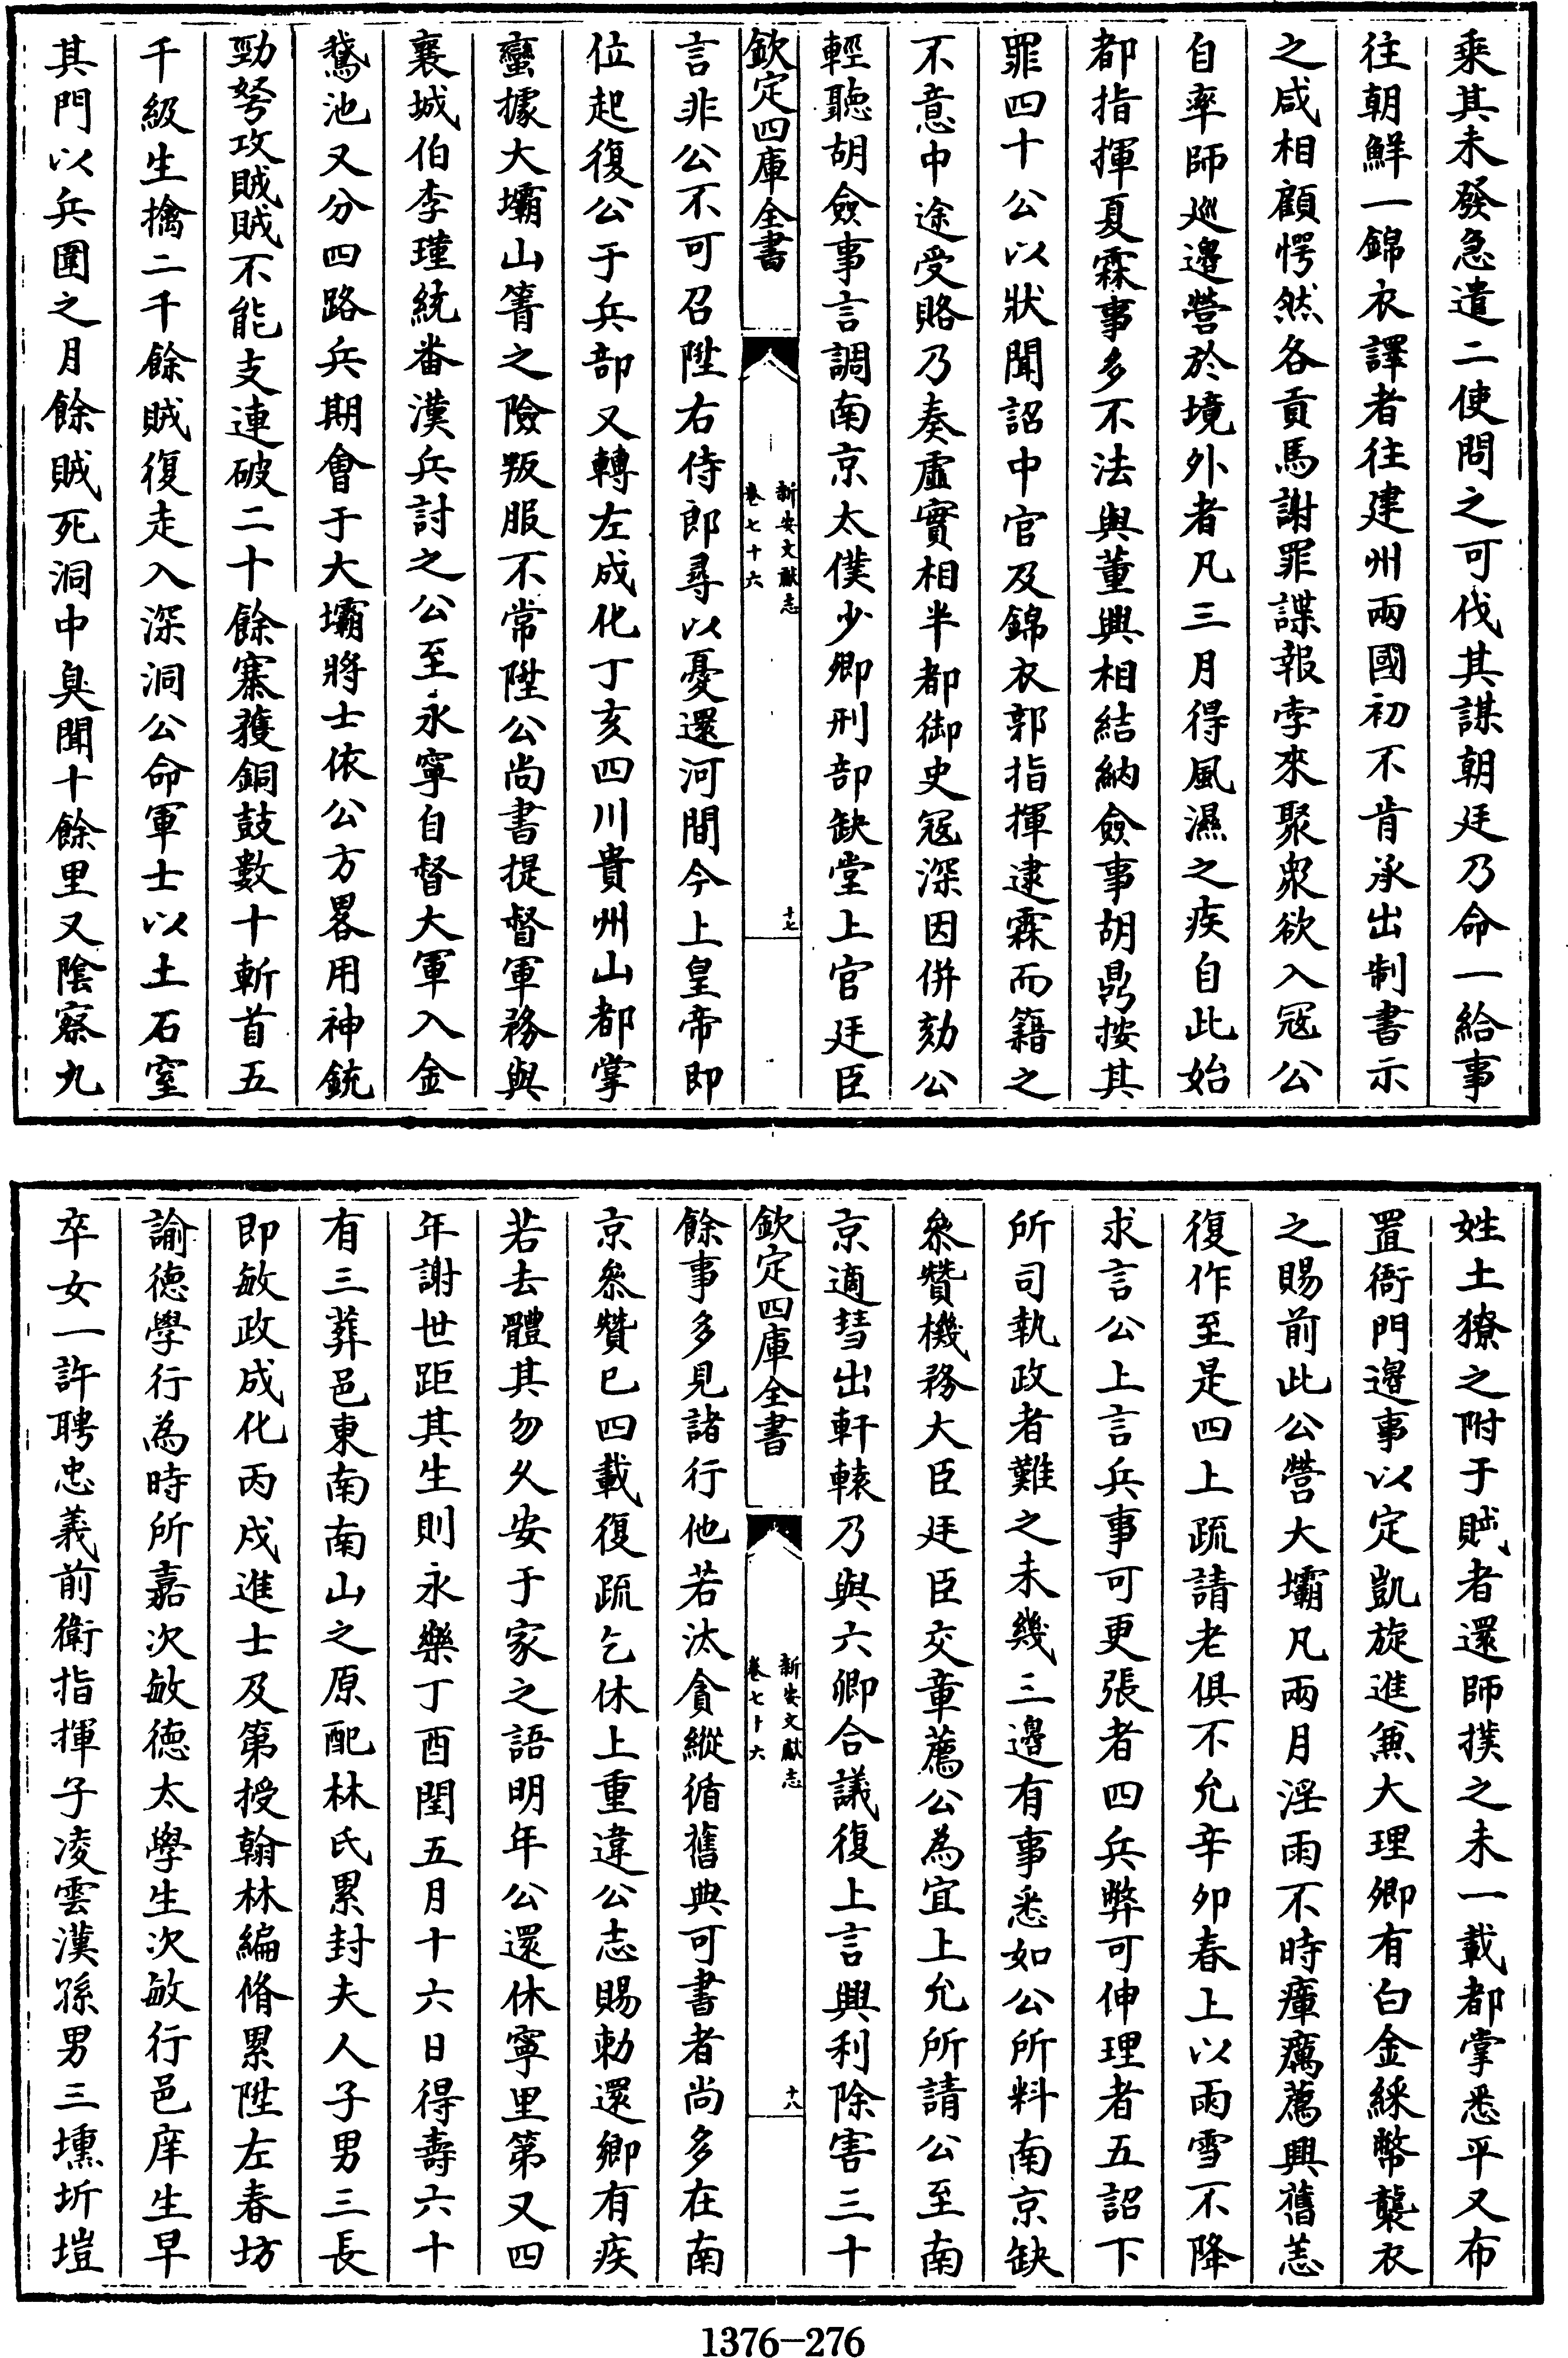 乘其未發急遣二使問之可伐其謀朝廷乃命一給事
往朝鮮一錦衣譯者往建州兩國初不肯承出制書示
之咸相顧愕然各貢馬謝罪諜報孛來聚衆欲入冦公
自率師巡邊營於境外者凡三月得風濕之疾自此始
都指揮夏霖事多不法與董興相結納僉事胡鼎按其
罪四十公以狀聞詔中官及錦衣郭指揮逮霖而籍之
不意中途受賂乃奏虛實相半都御史冦深因併劾公
輕聽胡僉事言調南京太僕少卿刑部缺堂上官廷臣
欽定四庫全書
新安文獻志
卷七十六
十七
言非公不可召陞右侍郎尋以憂還河間今上皇帝即
位起復公于兵部又轉左成化丁亥四川貴州山都掌
蠻據大壩山箐之險叛服不常陞公尚書提督軍務與
襄城伯李瑾統番漢兵討之公至永寧自督大軍入金
鵞池又分四路兵期會于大壩將士依公方畧用神銃
勁弩攻賊賊不能支連破二十餘寨獲銅鼓數十斬首五
千級生擒二千餘賊復走入深洞公命軍士以土石窒
其門以兵圍之月餘賊死洞中臭聞十餘里又陰察九
姓土獠之附于賊者還師撲之未一載都掌悉平又布
置衙門邊事以定凱旋進兼大理卿有白金綵幣襲衣
之賜前此公營大壩凡兩月淫雨不時瘴癘薦興舊恙
復作至是四上疏請老俱不允辛卯春上以雨雪不降
求言公上言兵事可更張者四兵弊可伸理者五詔下
所司執政者難之未幾三邊有事悉如公所料南京缺
叅贊機務大臣廷臣交章薦公為宜上允所請公至南
京適彗出軒轅乃與六卿合議復上言興利除害三十
欽定四庫全書
新安文獻志
卷七十六
十八
餘事多見諸行他若汰貪縱循舊典可書者尚多在南
京叅贊已四載復疏乞休上重違公志賜勅還鄉有疾
若去體其勿久安于家之語明年公還休寧里第又四
年謝世距其生則永樂丁酉閏五月十六日得壽六十
有三葬邑東南南山之原配林氏累封夫人子男三長
即敏政成化丙戌進士及第授翰林編脩累陞左春坊
諭德學行為時所嘉次敏德太學生次敏行邑庠生早
卒女一許聘忠義前衛指揮子凌雲漢孫男三壎圻塏
1376-276